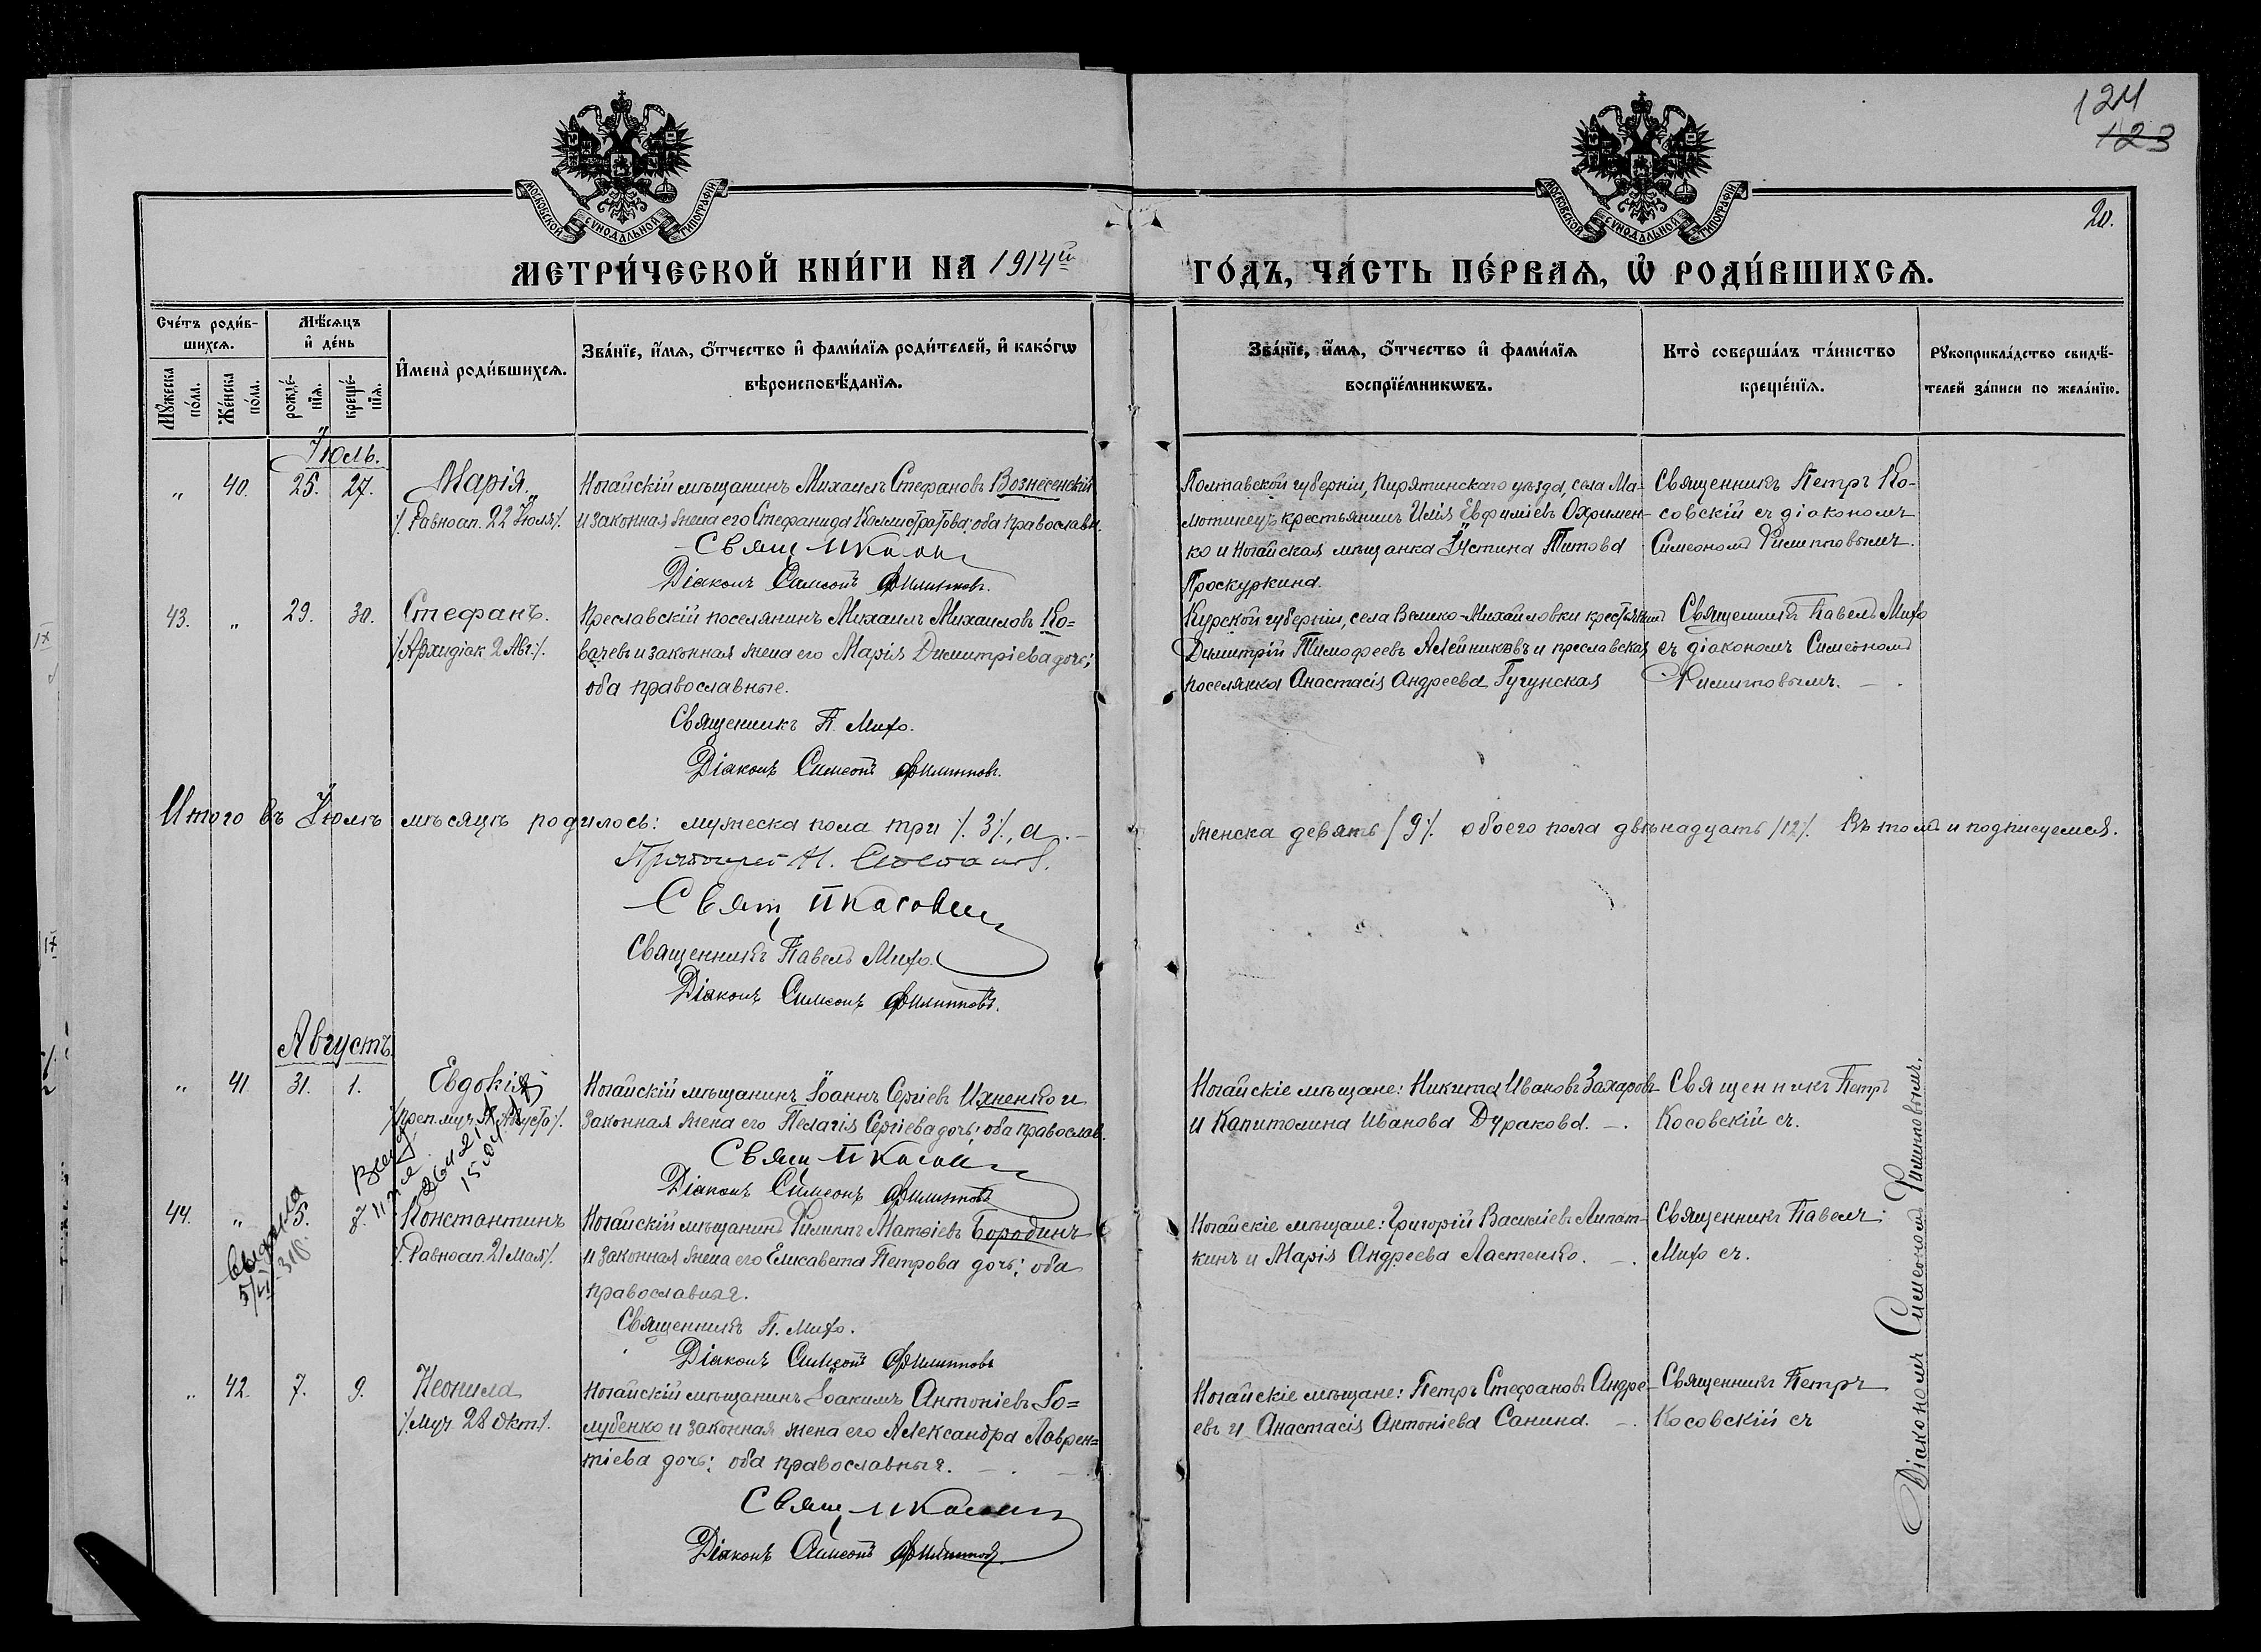 124
123
МОСКОВСКОЙ СУНОДАЛЬНОЙ ТИПОГРАФІИ
МОСКОВСКОЙ СУНОДАЛЬНОЙ ТИПОГРАФІИ
20.
МЕТРИ́ЧЕСКОЙ КНИ́ГИ НА 1914й
ГО́ДЪ, ЧА́СТЬ ПЕ́РВАѦ, Ѡ РОДИ́ВШИХСѦ.
Сче́тъ роди́в-
шихсѧ.
Мѣ́сѧцъ
и де́нь
Мꙋжеска
по́ла.
Же́нска
по́ла.
рожде́-
нїѧ.
креще́-
нїѧ.
И҆мена̀ роди́вшихсѧ.
Зва́нїе, и҆́мѧ, ѻ҆́тчество и҆ фами́лїѧ роди́телей, и҆ како́гѡ
вѣроисповѣ́данїѧ.
Зва́нїе, и҆́мѧ, ѻ҆́тчество и҆ фами́лїѧ
воспрїе́мникѡвъ.
Кто̀ соверша́лъ та́инство
креще́нїѧ.
Рꙋкоприкла́дство свидѣ́-
телей за́писи по жела́нїю.
Іюль.
" 40. 25. 27. Марія.
/. Равноап. 22 Іюля /.
Ногайскій мѣщанинъ Михаилъ Стефановъ Вознесенскій
и законная жена его Стефанида Каллистратова; оба православн.
Свящ
Діаконъ Симеонъ Филипповъ.
Полтавской губерніи, Пирятинскаго уѣзда, села Ма-
мотинецъ крестьянинъ Илія Евфиміевъ Охримен-
ко и Ногайская мѣщанка Іустина Титова
Проскуркина.
Священникъ Петръ Ко-
совскій съ діакономъ
Симеономъ Филипповымъ.
43. " 29. 30. Стефанъ.
/. Архидіак. 2 Авг. /.
Преславскій поселянинъ Михаилъ Михаиловъ Ко=
вачевъ и законная жена его Марія Димитріева дочь;
оба православные.
Священникъ П. Михо.
Діаконъ Симеонъ Филипповъ.
Курской губерніи, села Велико-Михайловки крестьянинъ
Димитрій Тимофеевъ Алейниковъ и преславская
поселянка Анастасія Андреева Гугунская
Священникъ Павелъ Михо
съ діакономъ Симеономъ
Филипповымъ. —.
Итого въ Іюлѣ мѣсяцѣ родилось: мужеска пола три /. 3 /., а.—
женска девять /. 9 /. обоего пола двѣнадцать /. 12 /. Въ томъ и подписуемся.
Свящ П Косовскій
Священникъ Павелъ Михо.
Діаконъ Симеонъ Филипповъ.
Августъ.
" 41. 31. 1. Евдокія
/. преп. муч. Августа /.
Ногайскій мѣщанинъ Іоаннъ Сергіевъ Ихненко и
законная жена его Пелагія Сергіева дочь; оба православ.
Свящ П Косовскій
Діаконъ Симеонъ Филипповъ
Ногайскіе мѣщане: Никита Ивановъ Захаровъ
и Капитолина Иванова Дуракова. —.
Священникъ Петръ
Косовскій съ.
44. " 5. 8. Константинъ
/. Равноап. 21 Мая /.
Ногайскій мѣщанинъ Филиппъ Матѳіевъ Бородинъ
и законная жена его Елисавета Петрова дочь; оба
православныя.
Священникъ П. Михо.
Діаконъ Симеонъ Филипповъ
Ногайскіе мѣщане: Григорій Василіевъ Липат-
кинъ и Марія Андреева Ластенко. —.
Священникъ Павелъ
Михо съ.
" 42. 7. 9. Неонила
/. Муч. 28 Окт. /.
Ногайскій мѣщанинъ Іоакимъ Антоніевъ Го=
лубенко и законная жена его Александра Лаврен=
тіева дочь; оба православныя. —.—
Свящ П Косовскій
Діаконъ Симеонъ Филипповъ
Ногайскіе мѣщане: Петръ Стефановъ Андре-
евъ и Анастасія Антоніева Санина. —.
Священникъ Петръ
Косовскій съ
Діакономъ Симеономъ Филипповымъ.